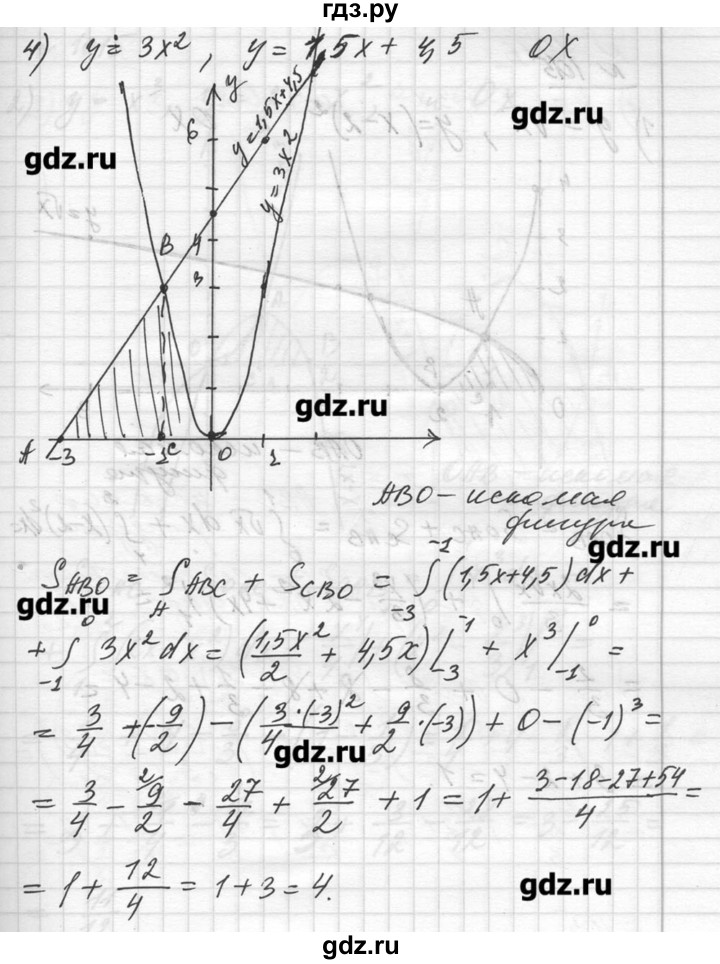 гдз.ру
4) y = 3x², y = 1,5x + 4,5 OX
gdz.ru
gdz.ru
y
6
y=1,5x+4,5
y=3x²
B
4
3
gdz.ru
A -3 -1 C 0 1
ABO – искомая
фигура
gdz.ru
S_ABO = S_ABC + S_CBO = ∫_{-3}^{-1} (1,5x+4,5)dx +
gdz.ru
+ ∫_{-1}^{0} 3x²dx = (1,5x²/2 + 4,5x)|_{-3}^{-1} + x³|_{-1}^{0} =
= 3/4 + (-9/2) - (3·(-3)²/4 + 9/2·(-3)) + 0 - (-1)³ =
gdz.ru
= 3/4 - 9/2 - 27/4 + 27/2 + 1 = 1 + (3-18-27+54)/4 =
= 1 + 12/4 = 1 + 3 = 4.
gdz.ru
gdz.ru